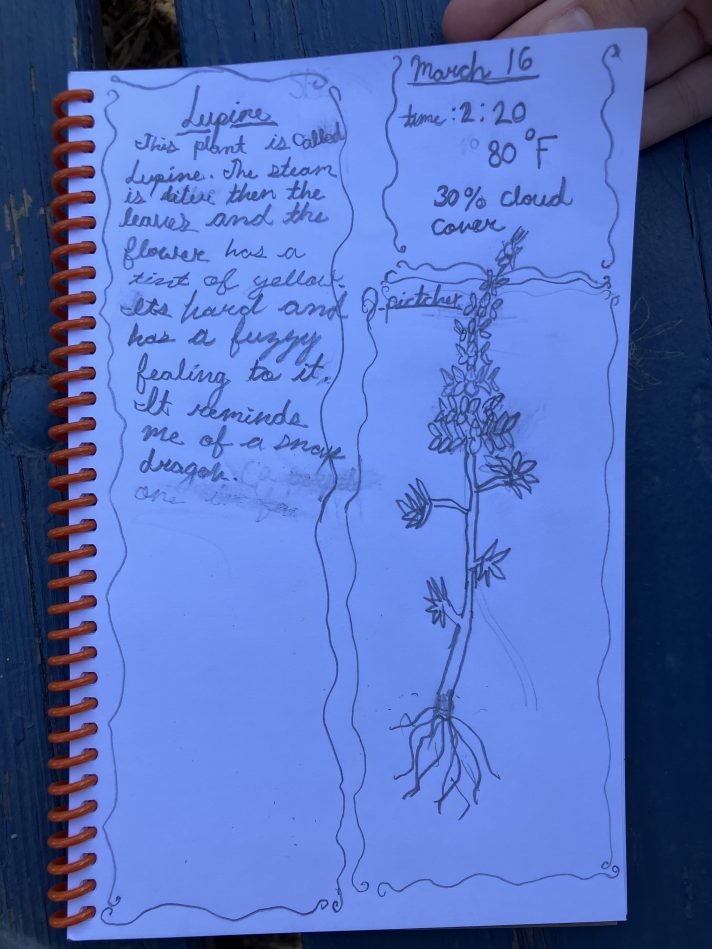 Lupine
This plant is called
Lupine. The steam
is then the
leaves and the
flower has a
tint of yellow.
Its hard and
has a fuzzy
fealing to it.
It reminds
me of a snap
dragon.
March 16
time: 2:20
80°F
30% cloud
cover
pictcher